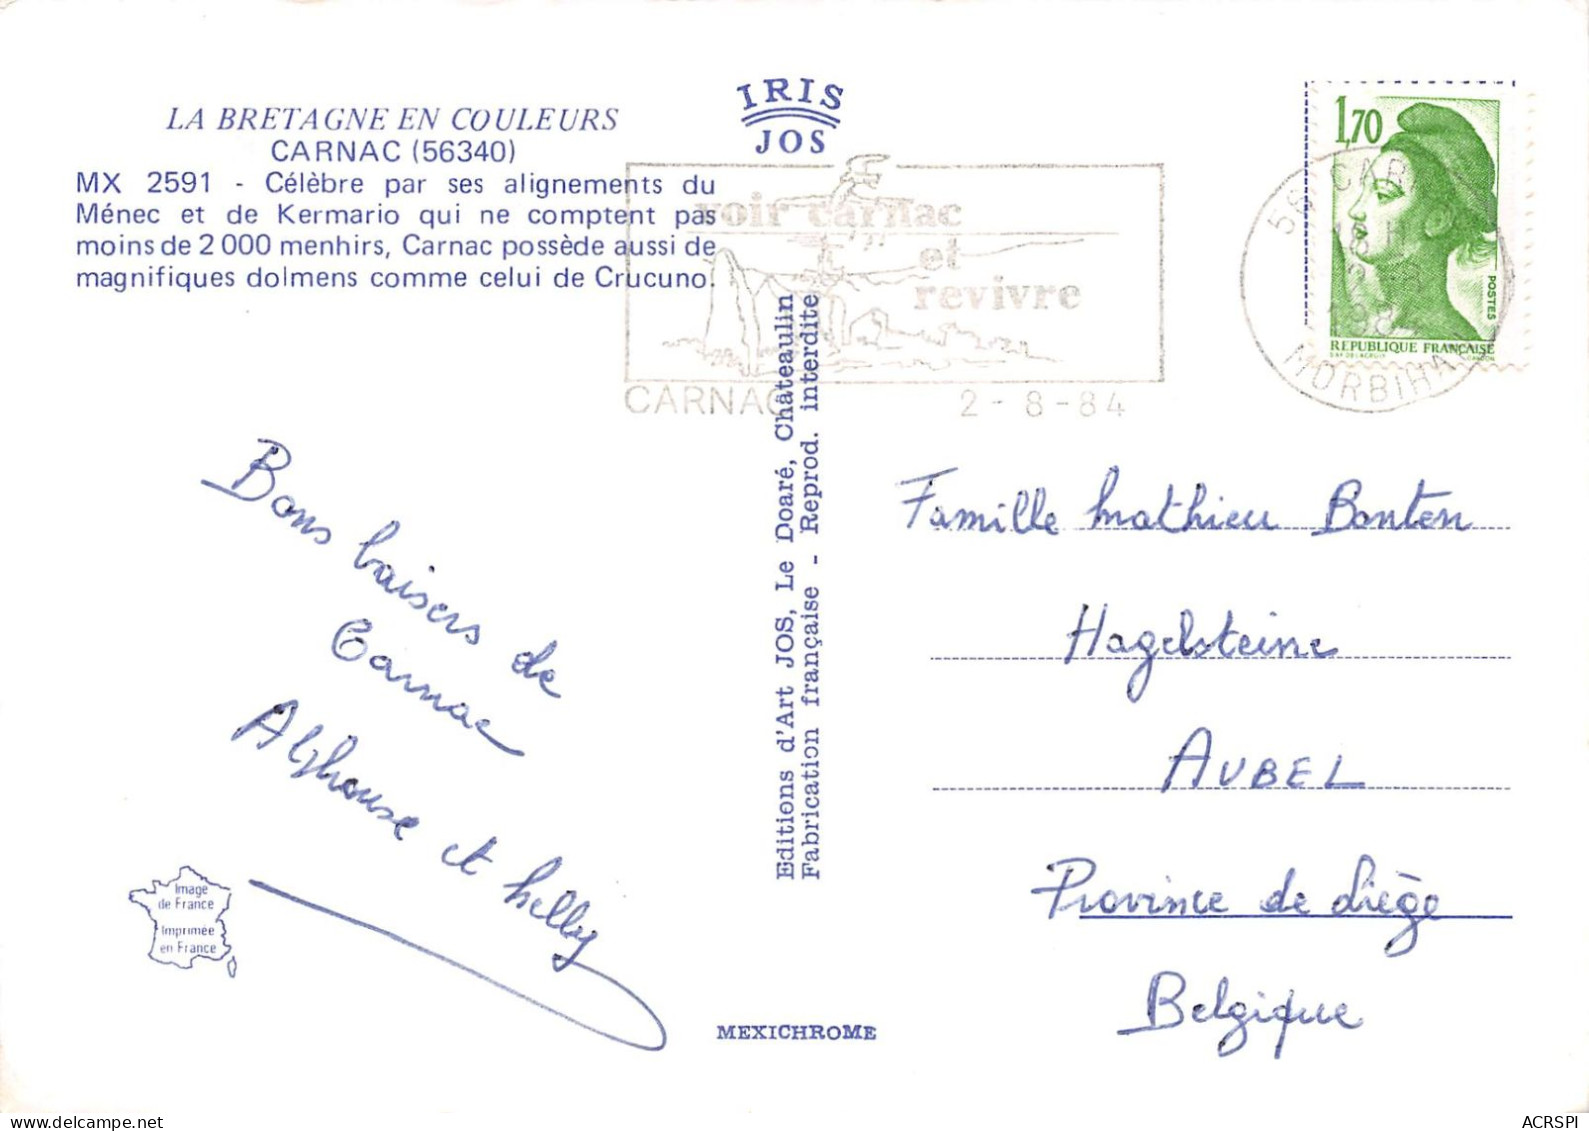 LA BRETAGNE EN COULEURS
CARNAC (56340)
MX 2591 - Célèbre par ses alignements du
Ménec et de Kermario qui ne comptent pas
moins de 2 000 menhirs, Carnac possède aussi de
magnifiques dolmens comme celui de Crucuno.
IRIS
JOS
voir carnac
et
revivre
CARNAC 2-8-84
1,70
POSTES
REPUBLIQUE FRANÇAISE
56 CAR
18 H
2-8
1984
MORBIHAN
Bons baisers de
Carnac
Alphonse et Nelly
Image
de France
Imprimée
en France
Editions d'Art JOS, Le Doaré, Châteaulin
Fabrication française - Reprod. interdite
MEXICHROME
Famille Mathieu Bonten
Hagelsteine
AUBEL
Province de Liège
Belgique
ACRSPI